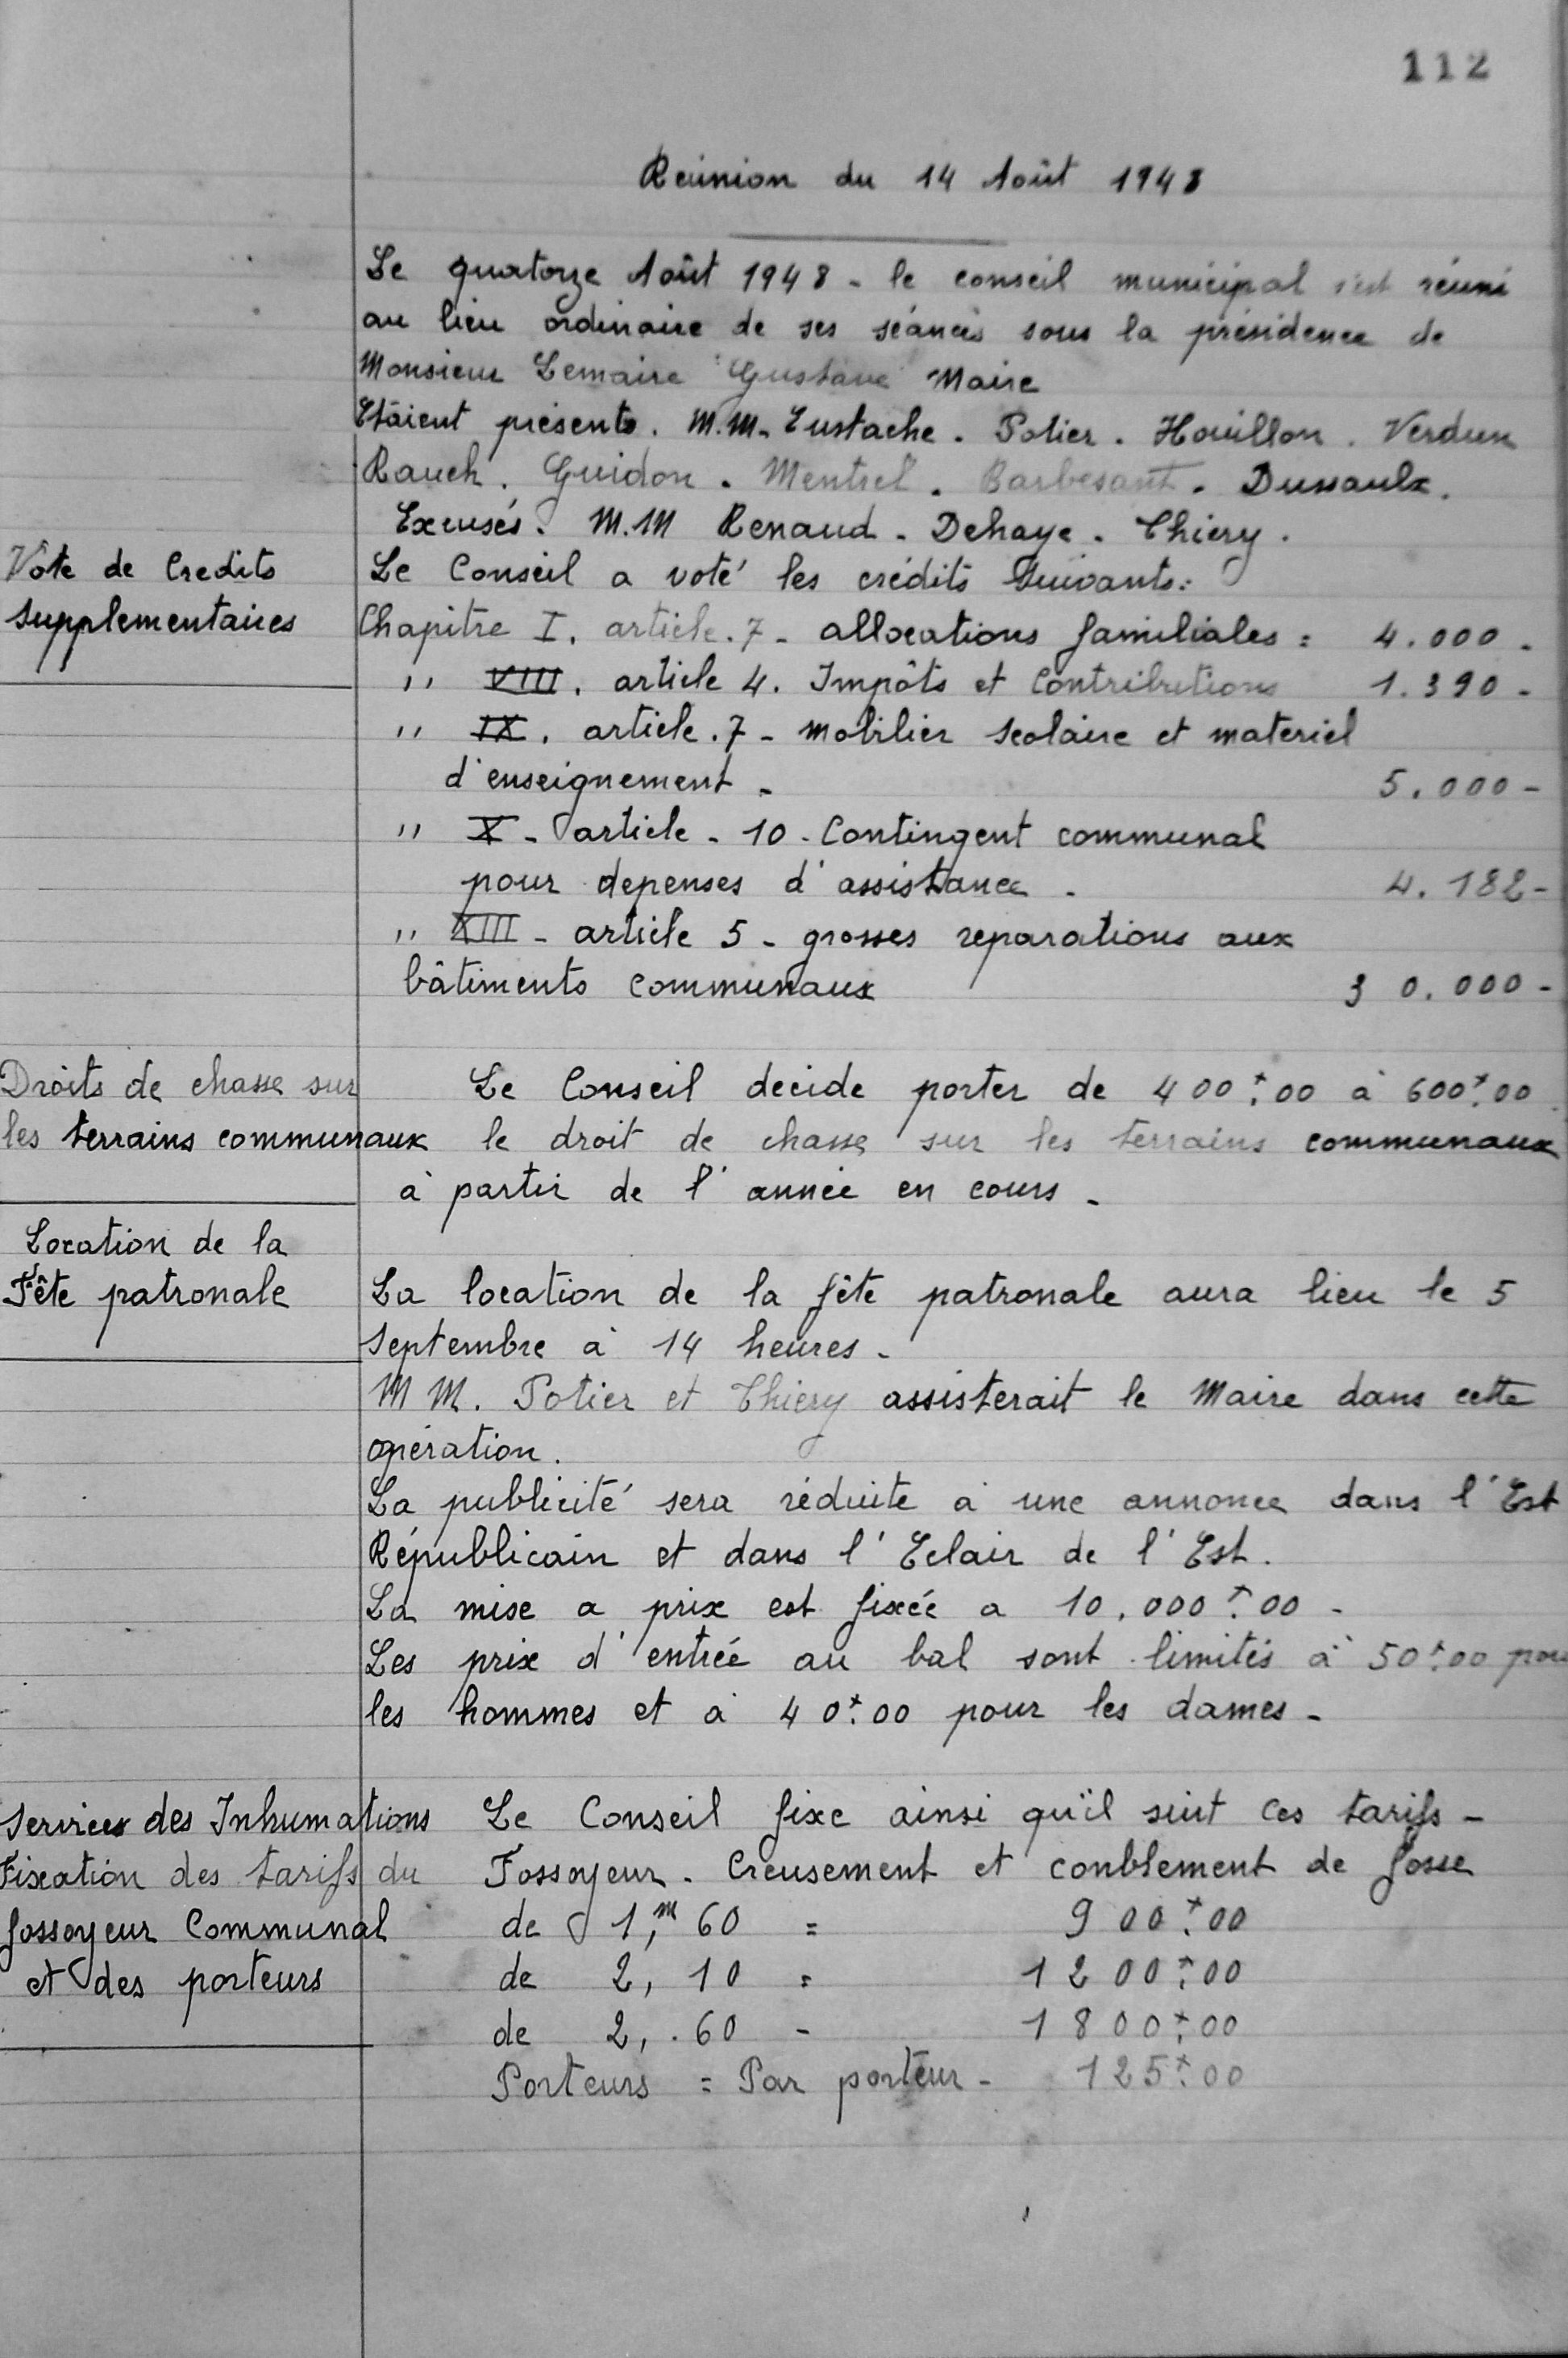 112
Reúnion du 14 Août 1948
Le quatorze Août 1948 - le conseil municipal s'est réuni
au lieu ordinaire de ses séances sous la présidence de
Monsieur Lemaire Gustave Maire
Etaient présents. M.M- Eustache. Potier. Houillon. Verdun
Rauch. Guidon. Mentrel. Barbesant. Dussaulx.
Excusés. M.M Renaud. Dehaye. Thiery.
Vote de Credits
supplementaires
Le Conseil a voté les crédits suivants:
Chapitre I. article.7- allocations familiales = 4.000 -
" VIII. article 4. Impôts et Contributions 1.390 -
" IX. article.7- mobilier scolaire et materiel
d'enseignement - 5.000 -
" X- article - 10 - Contingent communal
pour depenses d'assistance - 4.182 -
" XIII - article 5 - grosses reparations aux
bâtiments communaux 30.000 -
Droits de chasse sur
les terrains communaux
Le Conseil decide porter de 400f.00 à 600f.00
le droit de chasse sur les terrains communaux
à partir de l'année en cours -
Location de la
Fête patronale
La location de la fête patronale aura lieu le 5
septembre à 14 heures -
M M. Potier et Thiery assisterait le Maire dans cette
opération.
La publicité sera réduite à une annonce dans l'Est
Républicain et dans l'Eclair de l'Est.
La mise a prix est fixée a 10.000f.00 -
Les prix d'entrée au bal sont limités à 50f.00 pou
les hommes et à 40f.00 pour les dames -
Services des Inhumations
Fixation des tarifs du
fossoyeur Communal
et des porteurs
Le Conseil fixe ainsi qu'il suit ces tarifs -
Fossoyeur - Creusement et comblement de fosse
de 1,m60 = 900f.00
de 2,10 = 1200f.00
de 2,.60 - 1800f.00
Porteurs = Par porteur - 125f.00